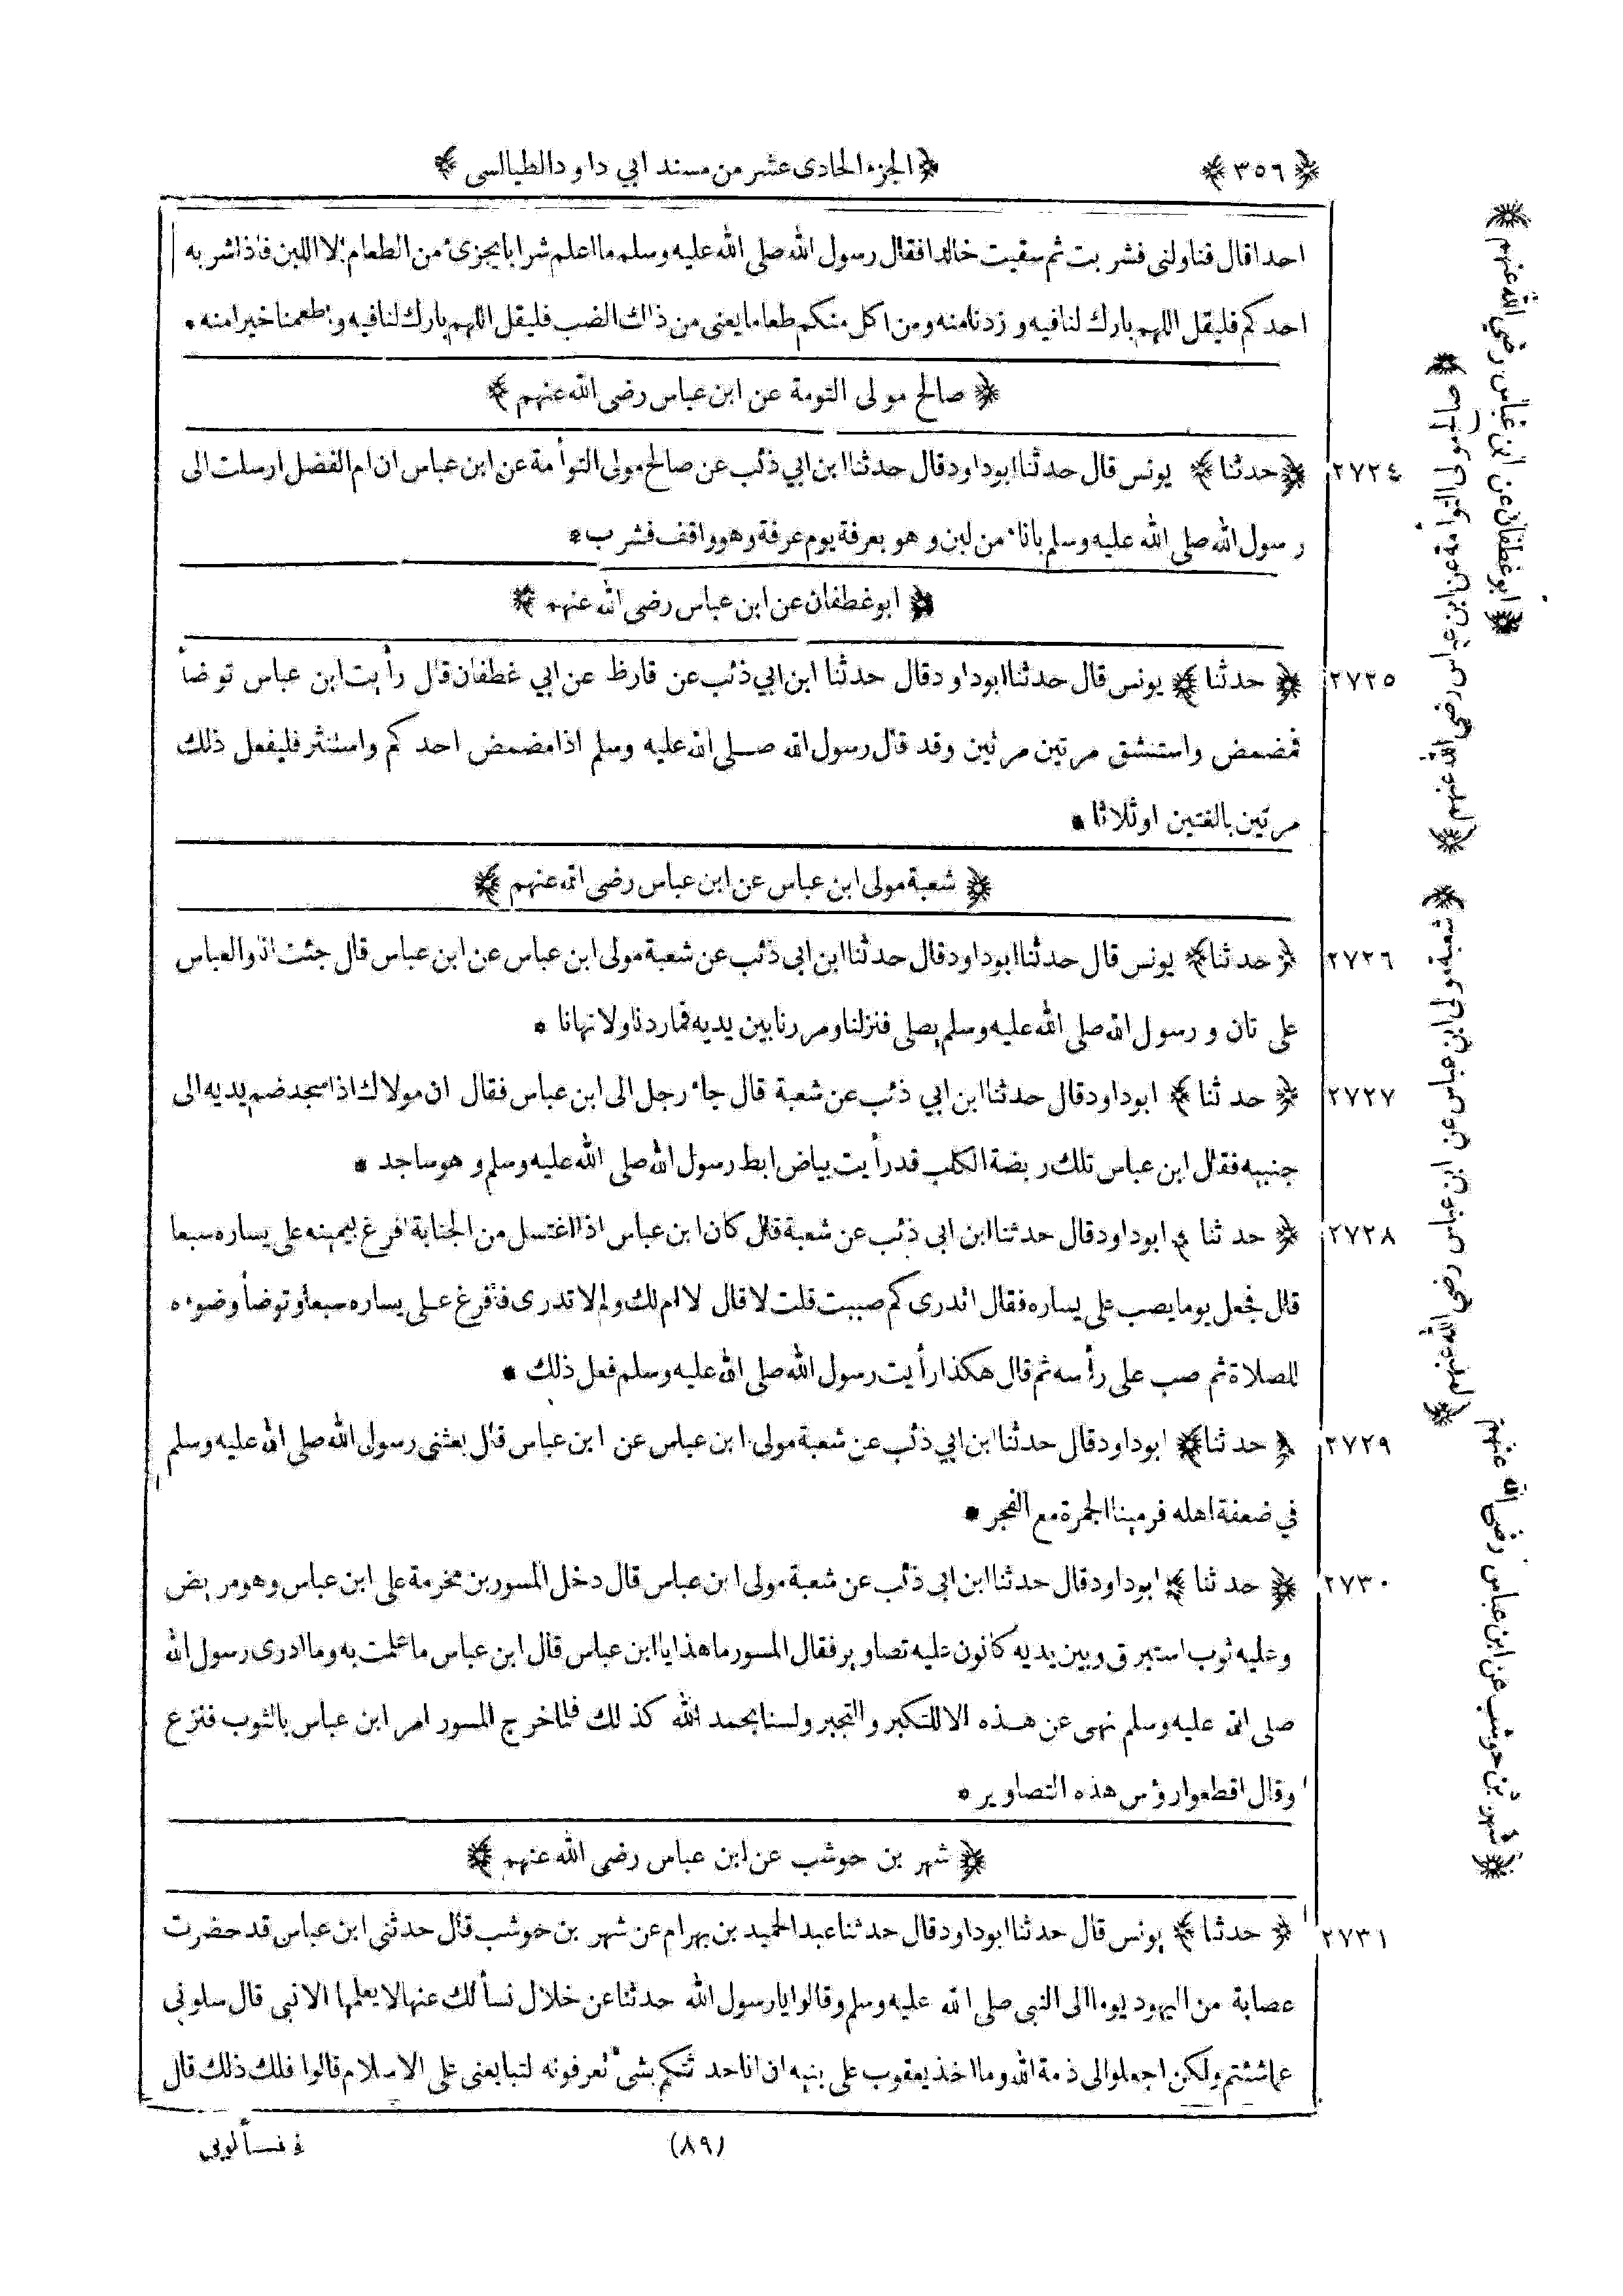 ﴿ ٣٥٦ ﴾ ﴿ الجزء الحادى عشر من مسند ابي داود الطيالسى ﴾
احدا قال فناولنى فشربت ثم سقيت خالدا فقال رسول الله صلى الله عليه وسلم ما اعلم شرابا يجزئ من الطعام الا اللبن فاذا شربه
احدكم فليقل اللهم بارك لنا فيه و زدنا منه ومن اكل منكم طعاما يعنى من ذاك الضب فليقل اللهم بارك لنا فيه و اطعمنا خيرا منه *
﴿ صالح مولى التومة عن ابن عباس رضى الله عنهم ﴾
٢٧٢٤ ﴿ حدثنا ﴾ يونس قال حدثنا ابوداود قال حدثنا ابن ابي ذئب عن صالح مولى التوأمة عن ابن عباس ان ام الفضل ارسلت الى
رسول الله صلى الله عليه وسلم باناء من لبن و هو بعرفة يوم عرفة وهو واقف فشرب *
﴿ ابوغطفان عن ابن عباس رضى الله عنهم ﴾
٢٧٢٥ ﴿ حدثنا ﴾ يونس قال حدثنا ابوداود قال حدثنا ابن ابي ذئب عن قارظ عن ابي غطفان قال رأيت ابن عباس توضأ
فمضمض واستنشق مرتين مرتين وقد قال رسول الله صلى الله عليه وسلم اذا مضمض احدكم واستنثر فليفعل ذلك
مرتين بالغتين او ثلاثا *
﴿ شعبة مولى ابن عباس عن ابن عباس رضى الله عنهم ﴾
٢٧٢٦ ﴿ حدثنا ﴾ يونس قال حدثنا ابوداود قال حدثنا ابن ابى ذئب عن شعبة مولى ابن عباس عن ابن عباس قال جئت انا والعباس
على تان و رسول الله صلى الله عليه وسلم يصلى فنزلنا ومررنا بين يديه فما ردنا ولا نهانا *
٢٧٢٧ ﴿ حدثنا ﴾ ابوداود قال حدثنا ابن ابي ذئب عن شعبة قال جاء رجل الى ابن عباس فقال ان مولاك اذا سجد ضم يديه الى
جنبيه فقال ابن عباس تلك ربضة الكلب قد رأيت بياض ابط رسول الله صلى الله عليه وسلم و هو ساجد *
٢٧٢٨ ﴿ حدثنا ﴾ ابوداود قال حدثنا ابن ابى ذئب عن شعبة قال كان ابن عباس اذا اغتسل من الجنابة افرغ بيمينه على يساره سبعا
قال فجعل يوما يصب على يساره فقال اتدرى كم صببت قلت لا قال لا ام لك ولم لا تدرى فافرغ على يساره سبعا وتوضأ وضوءه
للصلاة ثم صب على رأسه ثم قال هكذا رأيت رسول الله صلى الله عليه وسلم فعل ذلك *
٢٧٢٩ ﴿ حدثنا ﴾ ابوداود قال حدثنا ابن ابي ذئب عن شعبة مولى ابن عباس عن ابن عباس قال بعثنى رسول الله صلى الله عليه وسلم
في ضعفة اهله فرمينا الجمرة مع الفجر *
٢٧٣٠ ﴿ حدثنا ﴾ ابوداود قال حدثنا ابن ابى ذئب عن شعبة مولى ابن عباس قال دخل المسور بن مخرمة على ابن عباس وهو مريض
وعليه ثوب استبرق و بين يديه كانون عليه تصاوير فقال المسور ما هذا يا ابن عباس قال ابن عباس ما علمت به وما ادرى رسول الله
صلى الله عليه وسلم نهى عن هذه الا للتكبر والتجبر ولسنا بحمد الله كذلك فلما خرج المسور امر ابن عباس بالثوب فنزع
وقال اقطعوا رؤس هذه التصاوير *
﴿ شهر بن حوشب عن ابن عباس رضى الله عنهم ﴾
٢٧٣١ ﴿ حدثنا ﴾ يونس قال حدثنا ابوداود قال حدثنا عبد الحميد بن بهرام عن شهر بن حوشب قال حدثنى ابن عباس قد حضرت
عصابة من اليهود يوما الى النبى صلى الله عليه وسلم وقالوا يا رسول الله حدثنا عن خلال نسألك عنها لا يعلمها الا نبى قال سلونى
عما شئتم ولكن اجعلوا لى ذمة الله وما اخذ يعقوب على بنيه ان انا حدثتكم بشئ تعرفونه لتبايعنى على الاسلام قالوا فلك ذلك قال
(٨٩)
﴿ ابوغطفان عن ابن عباس رضي الله عنهم ﴾
﴿ صالح مولى التوأمة عن ابن عباس رضي الله عنهم ﴾
﴿ شعبة مولى ابن عباس عن ابن عباس رضي الله عنهم ﴾
﴿ شهر بن حوشب عن ابن عباس رضى الله عنهم